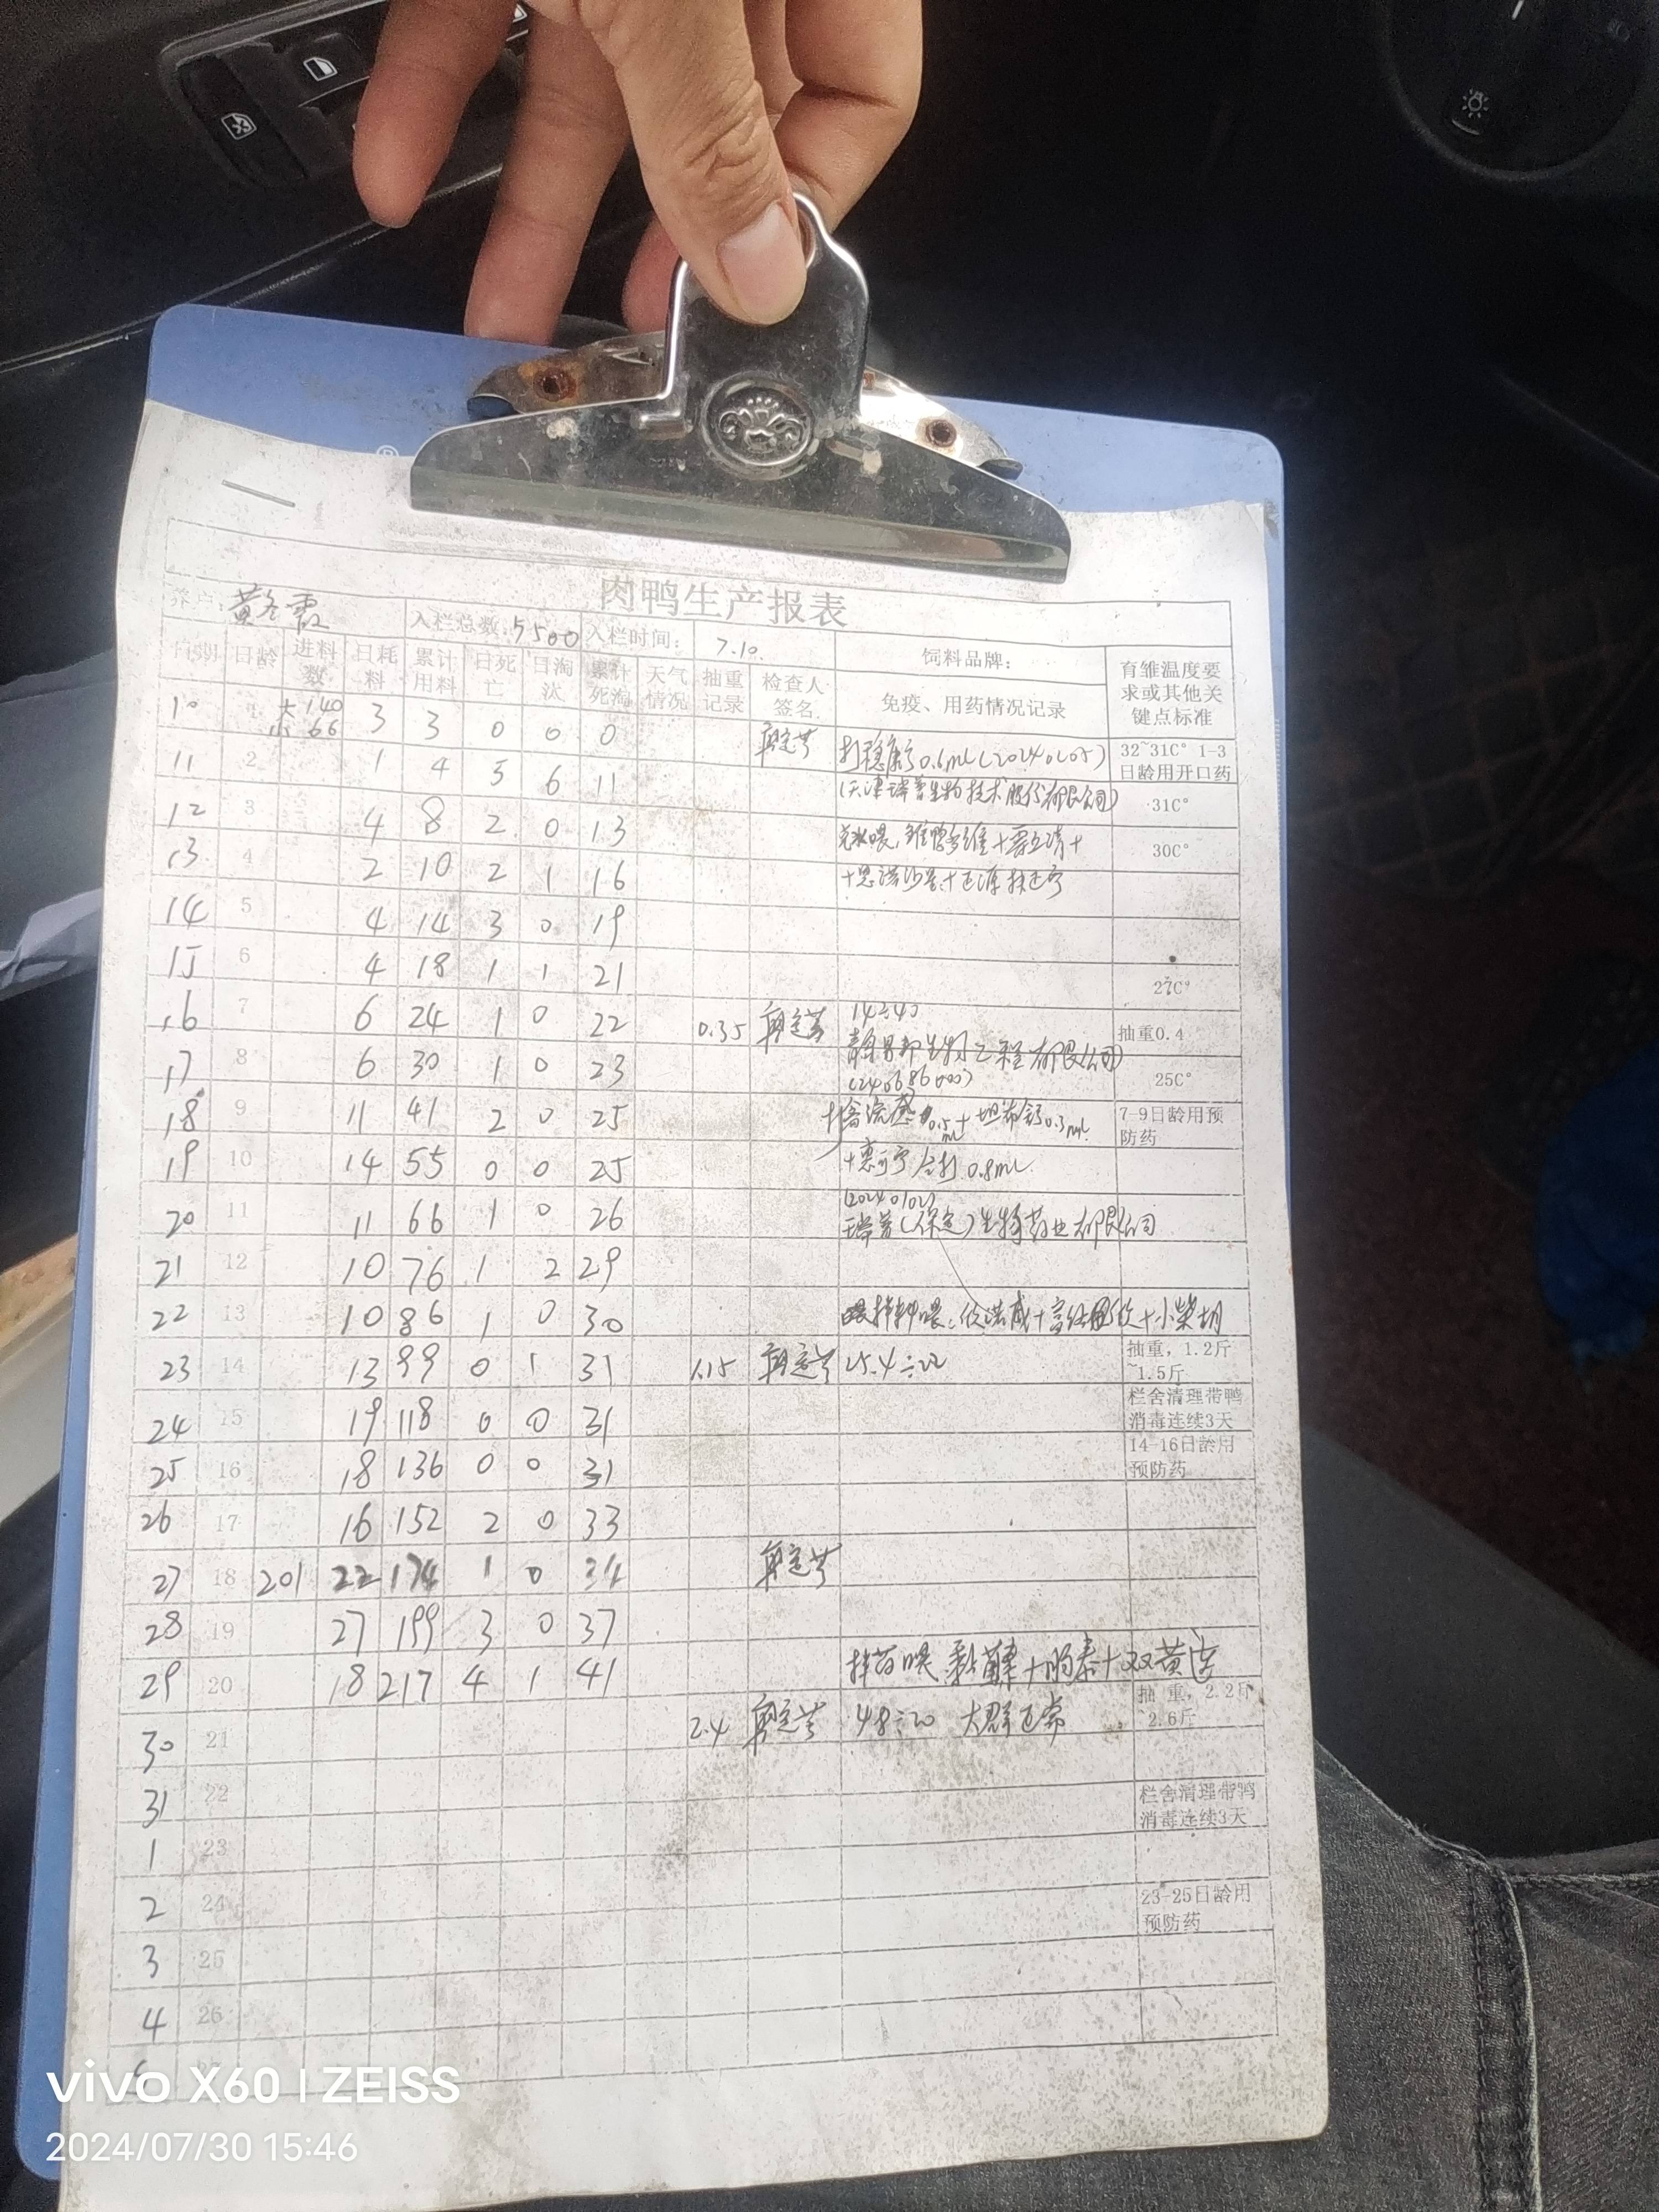 肉鸭生产报表
养户: 黄冬霞 入栏总数: 5500 入栏时间: 7.10. 饲料品牌: 育雏温度要求或其他关键点标准
日期 日龄 进料数 日耗料 累计用料 日死亡 日淘汰 累计死淘 天气情况 抽重记录 检查人签名 免疫、用药情况记录
10 1 大140 小66 3 3 0 0 0 32~31C° 1-3日龄用开口药
11 2 1 4 5 6 11 31C°
12 3 4 8 2 0 13 30C°
13 4 2 10 2 1 16
14 5 4 14 3 0 19
15 6 4 18 1 1 21 27C°
16 7 6 24 1 0 22 0.35 14÷40 抽重0.4
17 8 6 30 1 0 23 生物工程有限公司 25C°
18 9 11 41 2 0 25 禽流感 0.5ml+ 0.3ml 7-9日龄用预防药
19 10 14 55 0 0 25 合打 0.8mL
20 11 11 66 1 0 26 (保定)生物药业有限公司
21 12 10 76 1 2 29
22 13 10 86 1 0 30 +小柴胡
23 14 13 99 0 1 31 1.15 25.4÷22 抽重, 1.2斤~1.5斤
24 15 19 118 0 0 31 栏舍清理带鸭消毒连续3天
25 16 18 136 0 0 31 14-16日龄用预防药
26 17 16 152 2 0 33
27 18 201 22 174 1 0 34
28 19 27 199 3 0 37
29 20 18 217 4 1 41 拌药喂 +双黄连
30 21 2.4 48÷20 大群正常 抽重, 2.2斤~2.6斤
31 22 栏舍清理带鸭消毒连续3天
1 23
2 24 23-25日龄用预防药
3 25
4 26
vivo X60 | ZEISS
2024/07/30 15:46